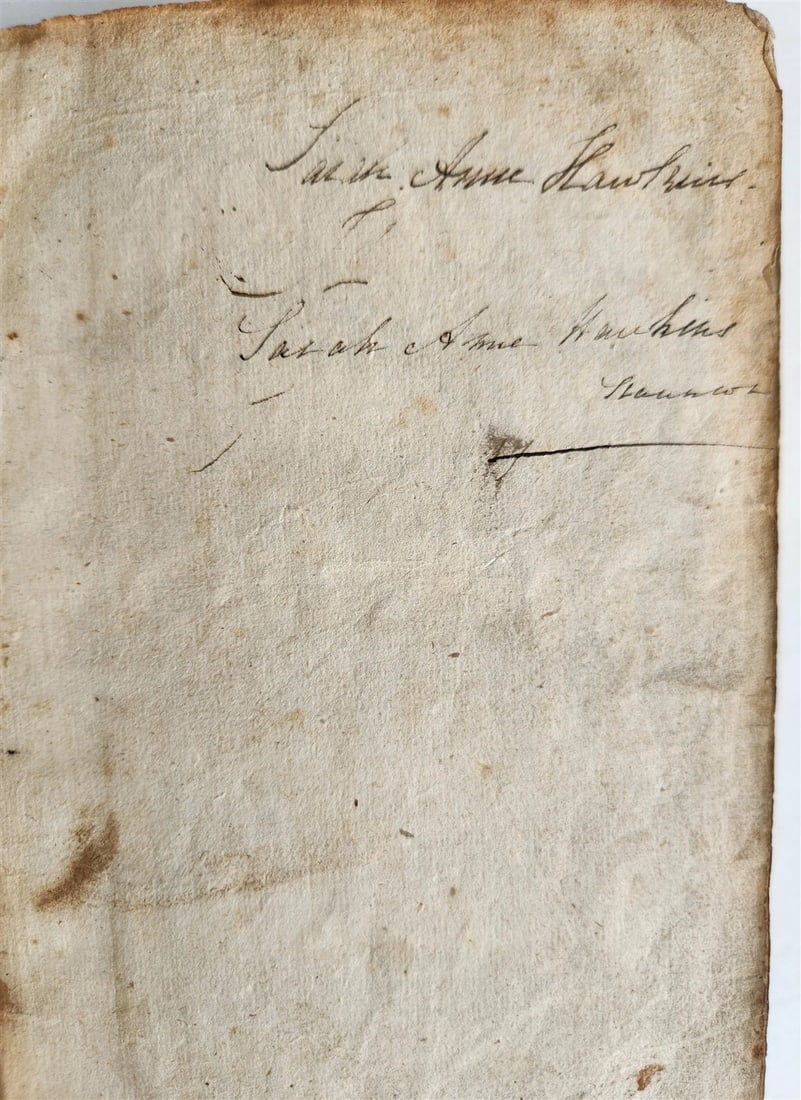 Sarah Anne Hawkins.
Sarah Anne Hawkins